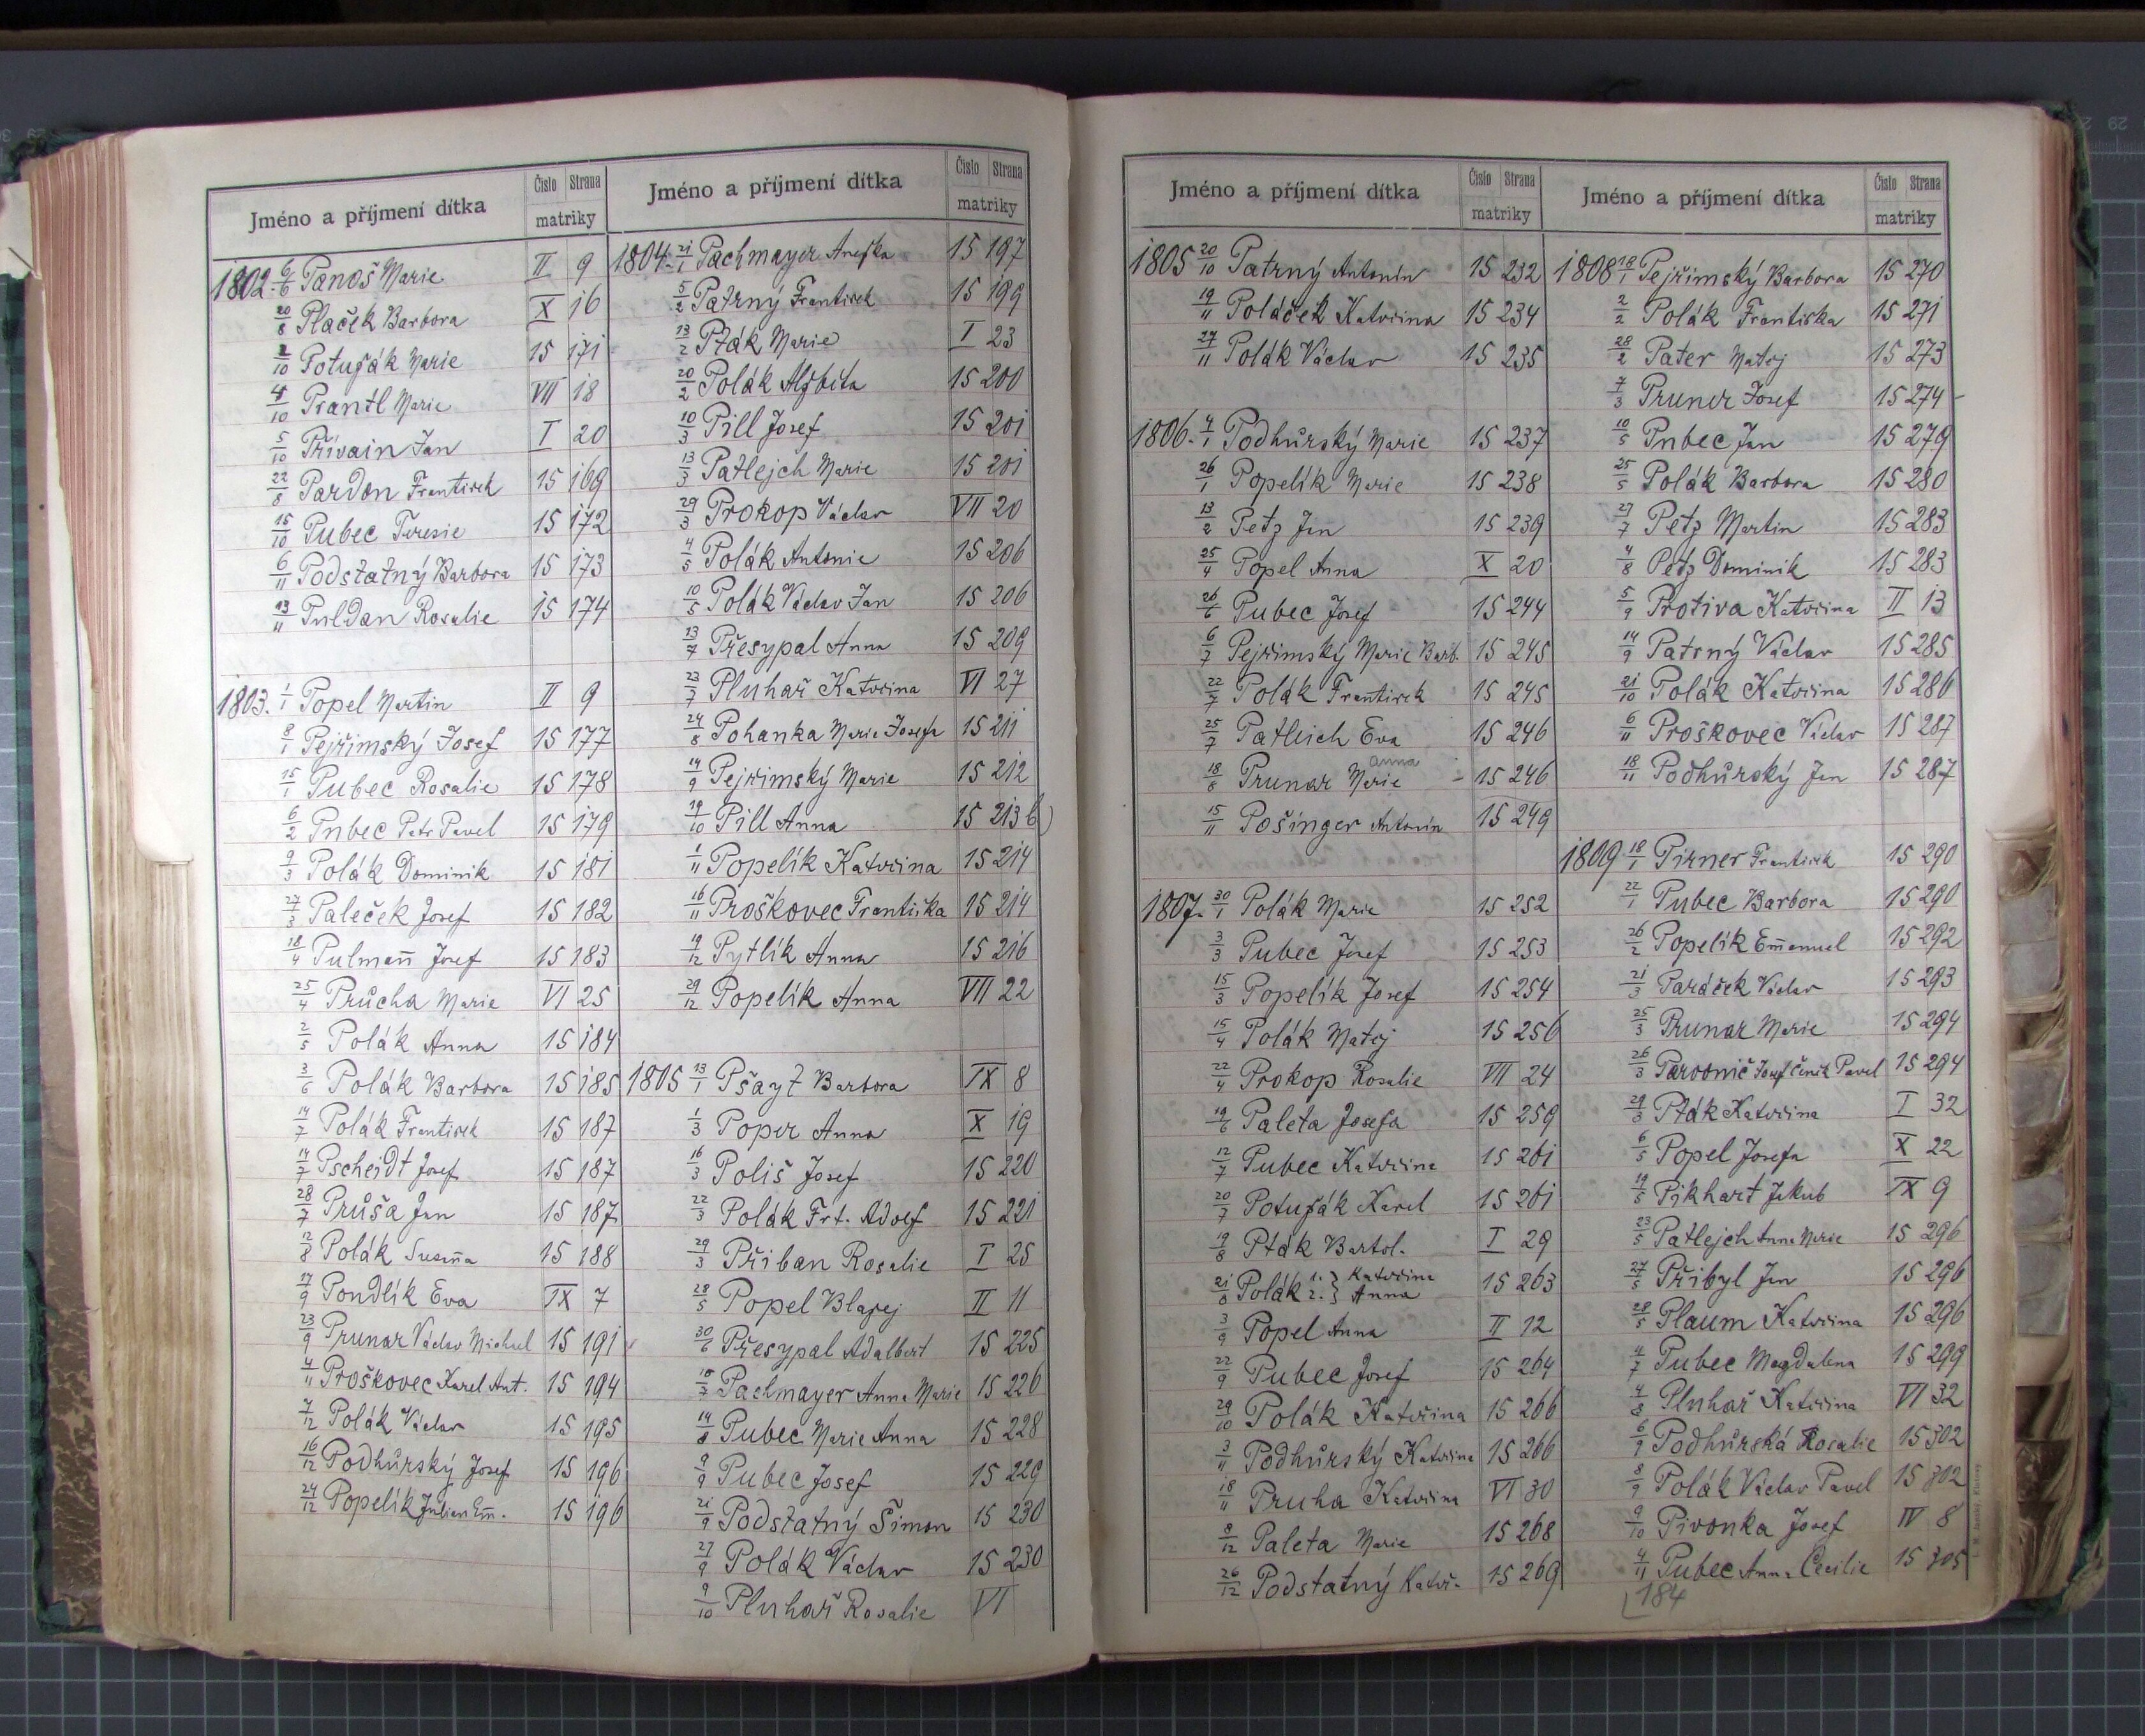 Jméno a příjmení dítka Číslo Strana
matriky
1802. 6/6 Panoš Marie II 9
20/8 Plaček Barbora X 16
2/10 Potužák Marie 15 171
4/10 Prantl Marie VII 18
5/10 Přívain Jan I 20
22/8 Pardon František 15 169
15/10 Pubec Teresie 15 172
6/11 Podstatný Barbora 15 173
13/11 Puldan Rosalie 15 174
1803. 1/1 Popel Martin II 9
8/1 Pejřimský Josef 15 177
15/1 Pubec Rosalie 15 178
6/2 Pubec Petr Pavel 15 179
9/3 Polák Dominik 15 181
27/3 Paleček Josef 15 182
18/4 Pulman̄ Josef 15 183
25/4 Průcha Marie VI 25
2/5 Polák Anna 15 184
3/6 Polák Barbora 15 185
14/7 Polák František 15 187
14/7 Pscheidt Josef 15 187
28/7 Průša Jan 15 187
2/8 Polák Susan̄a 15 188
17/9 Pondlík Eva IX 7
23/9 Prunar Václav Michael 15 191
4/11 Proškovec Karel Ant. 15 194
7/12 Polák Václav 15 195
16/12 Podhůrský Josef 15 196
24/12 Popelík Julian Em̄. 15 196
Jméno a příjmení dítka Číslo Strana
matriky
1804. 21/1 Pachmayer Anežka 15 197
5/2 Patrný František 15 199
13/2 Pták Marie I 23
20/2 Polák Alžběta 15 200
10/3 Pill Josef 15 201
13/3 Patlejch Marie 15 201
29/3 Prokop Václav VII 20
4/5 Polák Antonie 15 206
10/5 Polák Václav Jan 15 206
13/7 Přesypal Anna 15 209
23/7 Pluhař Kateřina VI 27
24/8 Pohanka Marie Josefa 15 211
14/9 Pejřimský Marie 15 212
19/10 Pill Anna 15 213 b)
1/11 Popelík Kateřina 15 214
16/11 Proškovec Františka 15 214
19/12 Pytlík Anna 15 216
29/12 Popelík Anna VII 22
1805 13/1 Pšayt Barbora IX 8
1/3 Poper Anna X 19
16/3 Poliš Josef 15 220
22/3 Polák Frt. Adolf 15 221
29/3 Přiban Rosalie I 25
28/5 Popel Blažej II 11
30/6 Přesypal Adalbert 15 225
18/7 Pachmayer Anna Marie 15 226
14/8 Pubec Marie Anna 15 228
9/9 Pubec Josef 15 229
21/9 Podstatný Šimon 15 230
27/9 Polák Václav 15 230
9/10 Pluhař Rosalie VI
Jméno a příjmení dítka Číslo Strana
matriky
1805 20/10 Patrný Antonín 15 232
19/11 Poláček Kateřina 15 234
27/11 Polák Václav 15 235
1806. 4/1 Podhůrský Marie 15 237
26/1 Popelík Marie 15 238
13/2 Petz Jan 15 239
25/4 Popel Anna X 20
26/6 Pubec Josef 15 244
6/7 Pejřimský Marie Barb. 15 245
22/7 Polák František 15 245
25/7 Patleich Eva 15 246
anna
18/8 Prunar Marie - 15 246
15/11 Pošinger Antonín 15 249
1807. 30/1 Polák Marie 15 252
3/3 Pubec Josef 15 253
15/3 Popelík Josef 15 254
15/4 Polák Matej 15 256
22/4 Prokop Rosalie VII 24
19/6 Paleta Josefa 15 259
12/7 Pubec Kateřina 15 261
20/7 Potužák Karel 15 261
19/8 Pták Bartol. I 29
21/8 Polák 1. } Kateřina 15 263
2. } Anna
3/9 Popel Anna II 12
22/9 Pubec Josef 15 264
29/10 Polák Kateřina 15 266
3/11 Podhůrský Kateřina 15 266
18/11 Pruha Kateřina VI 30
8/12 Paleta Marie 15 268
26/12 Podstatný Kateř. 15 269
Jméno a příjmení dítka Číslo Strana
matriky
1808 18/1 Pejřimský Barbora 15 270
2/2 Polák Františka 15 271
28/2 Pater Matej 15 273
7/3 Pruner Josef 15 274 -
10/5 Pubec Jan 15 279
25/5 Polák Barbora 15 280
27/7 Petz Martin 15 283
4/8 Petz Dominik 15 283
5/9 Protiva Kateřina II 13
14/9 Patrný Václav 15 285
21/10 Polák Kateřina 15 286
6/11 Proškovec Václav 15 287
18/11 Podhůrský Jan 15 287
1809 18/1 Pirner František 15 290
22/1 Pubec Barbora 15 290
26/2 Popelík Em̄anuel 15 292
21/3 Paráček Václav 15 293
25/3 Prunar Marie 15 294
26/3 Josef Čeněk Pavel 15 294
29/3 Pták Kateřina I 32
6/5 Popel Josefa X 22
19/5 Pikhart Jakub IX 9
23/5 Patlejch Anna Marie 15 296
27/5 Přibyl Jan 15 296
28/5 Plaum Kateřina 15 296
4/7 Pubec Magdalena 15 299
4/8 Pluhař Kateřina VI 32
6/9 Podhůrská Rosalie 15 302
8/9 Polák Václav Pavel 15 302
9/10 Pivonka Josef IV 8
4/11 Pubec Anna Cecilie 15 305
184